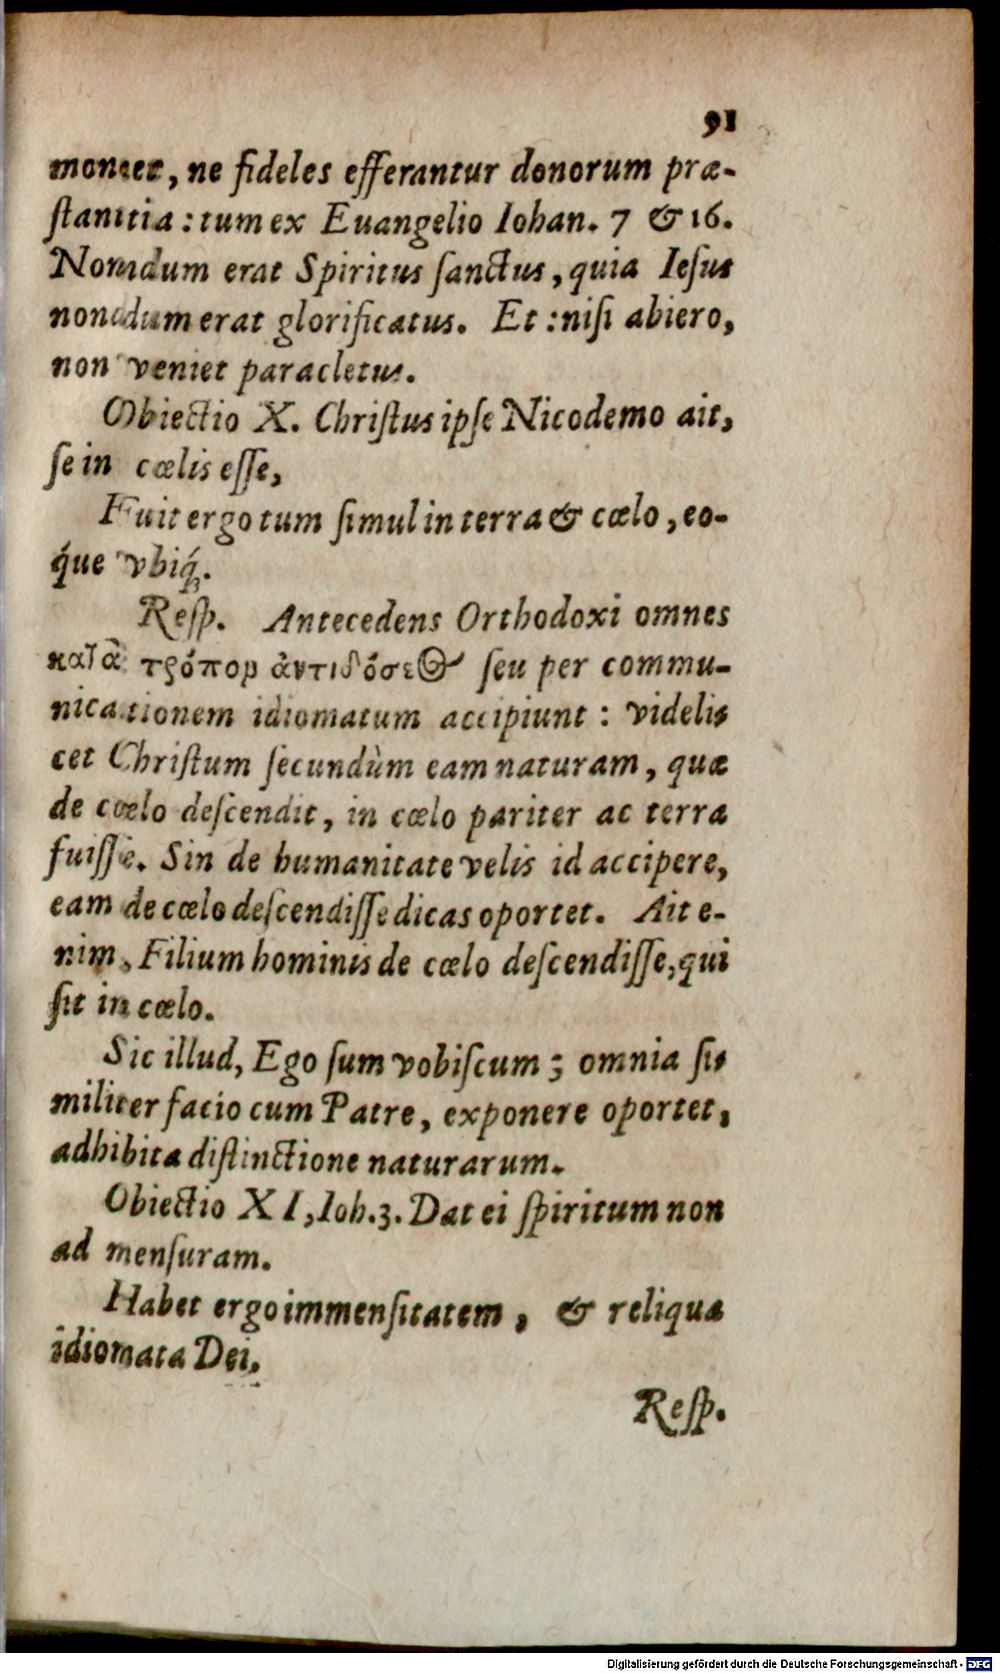 91
monet, ne fideles efferantur donorum præ-
ſtantia: tum ex Euangelio Iohan. 7 & 16.
Nondum erat Spiritus ſanctus, quia Ieſus
nondum erat glorificatus. Et: niſi abiero,
non veniet paracletus.
Obiectio X. Chriſtus ipſe Nicodemo ait,
ſe in cœlis eſſe,
Fuit ergo tum ſimul in terra & cœlo, eo-
q́ue vbiq́;.
Reſp. Antecedens Orthodoxi omnes
κατὰ τρόπον ἀντιδόσεως ſeu per commu-
nicationem idiomatum accipiunt: videli-
cet Chriſtum ſecundùm eam naturam, quæ
de cœlo deſcendit, in cœlo pariter ac terra
fuiſſe. Sin de humanitate velis id accipere,
eam de cœlo deſcendiſſe dicas oportet. Ait e-
nim, Filium hominis de cœlo deſcendiſſe, qui
ſit in cœlo.
Sic illud, Ego ſum vobiſcum; omnia ſi-
militer facio cum Patre, exponere oportet,
adhibita diſtinctione naturarum.
Obiectio XI, Ioh. 3. Dat ei ſpiritum non
ad menſuram.
Habet ergo immenſitatem, & reliqua
idiomata Dei.
Reſp.
Digitalisierung gefördert durch die Deutsche Forschungsgemeinschaft - DFG